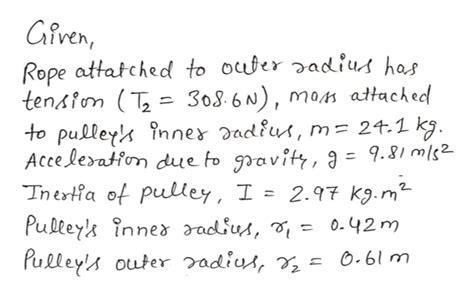 Given,
Rope attatched to outer radius has
tension (T₂ = 308.6N), mass attached
to pulley's inner radius, m = 24.1 kg.
Acceleration due to gravity, g = 9.81 m/s²
Inertia of pulley, I = 2.97 kg.m²
Pulley's inner radius, r₁ = 0.42m
Pulley's outer radius, r₂ = 0.61 m